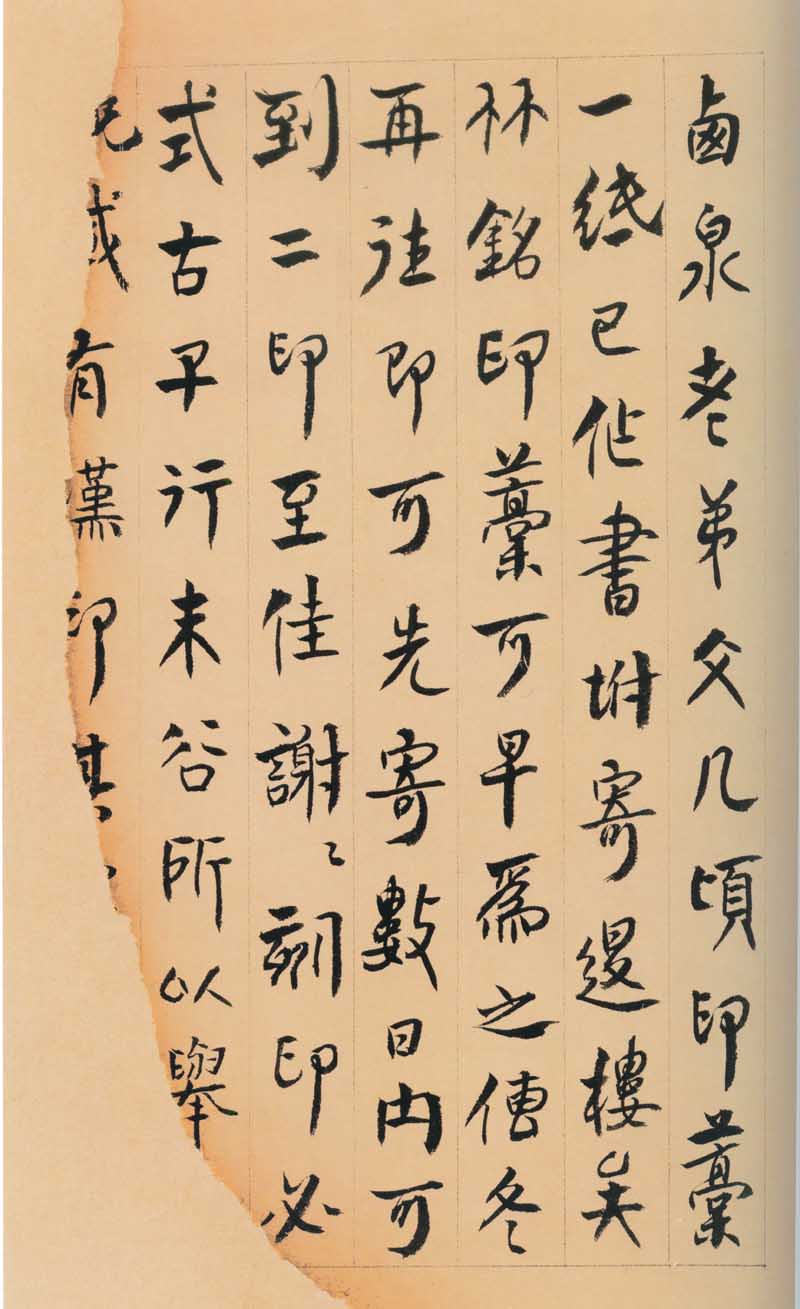 卥泉老弟文几頃印藁
一紙已作書坿寄退樓矣
林銘印藁可早爲之傳冬
再往即可先寄數日內可
到二印至佳謝〻刻印必
式古早行未谷所以舉
或有漢印其